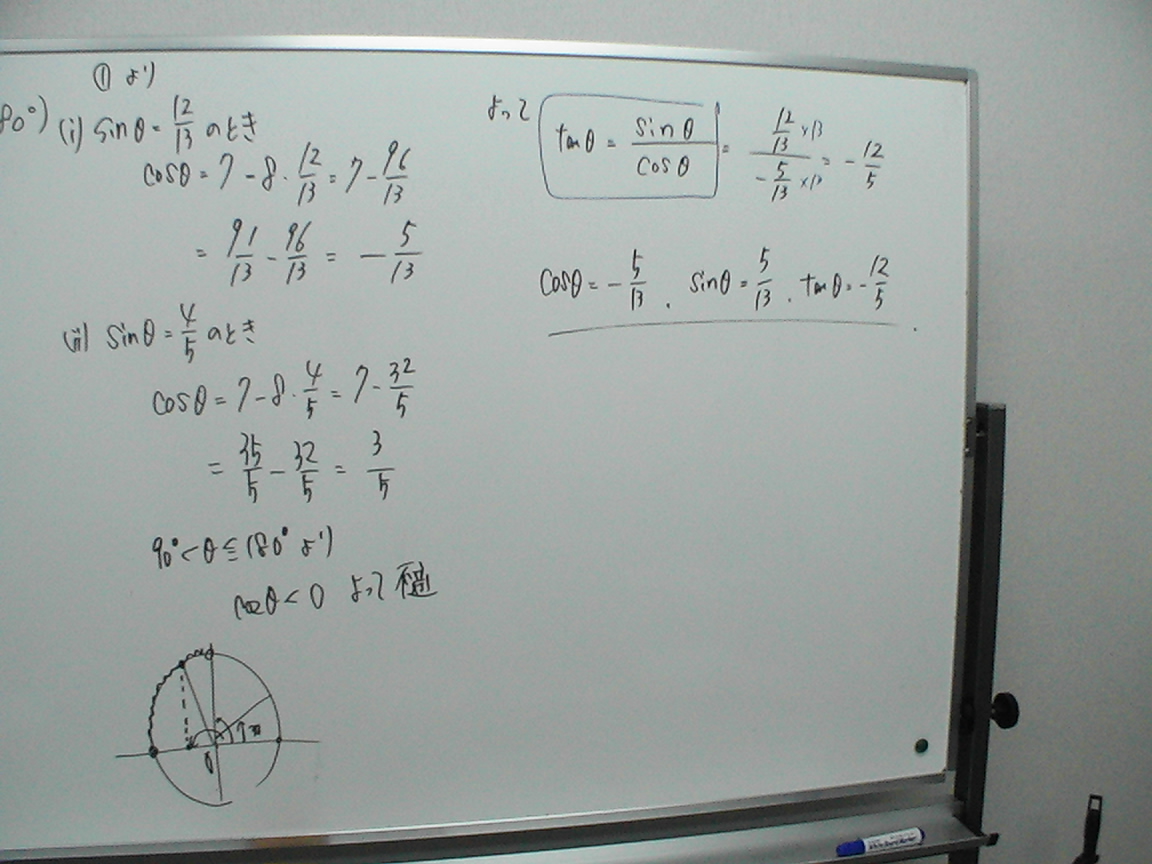 ①より
80°)
(i) sinθ = 12/13 のとき
cosθ = 7 - 8・12/13 = 7 - 96/13
= 91/13 - 96/13 = - 5/13
(ii) sinθ = 4/5 のとき
cosθ = 7 - 8・4/5 = 7 - 32/5
= 35/5 - 32/5 = 3/5
90° < θ ≦ 180° より
cosθ < 0 よって不適
0
よって tanθ = sinθ/cosθ = (12/13 ×13)/(-5/13 ×13) = - 12/5
cosθ = - 5/13 , sinθ = 5/13 , tanθ = - 12/5 .